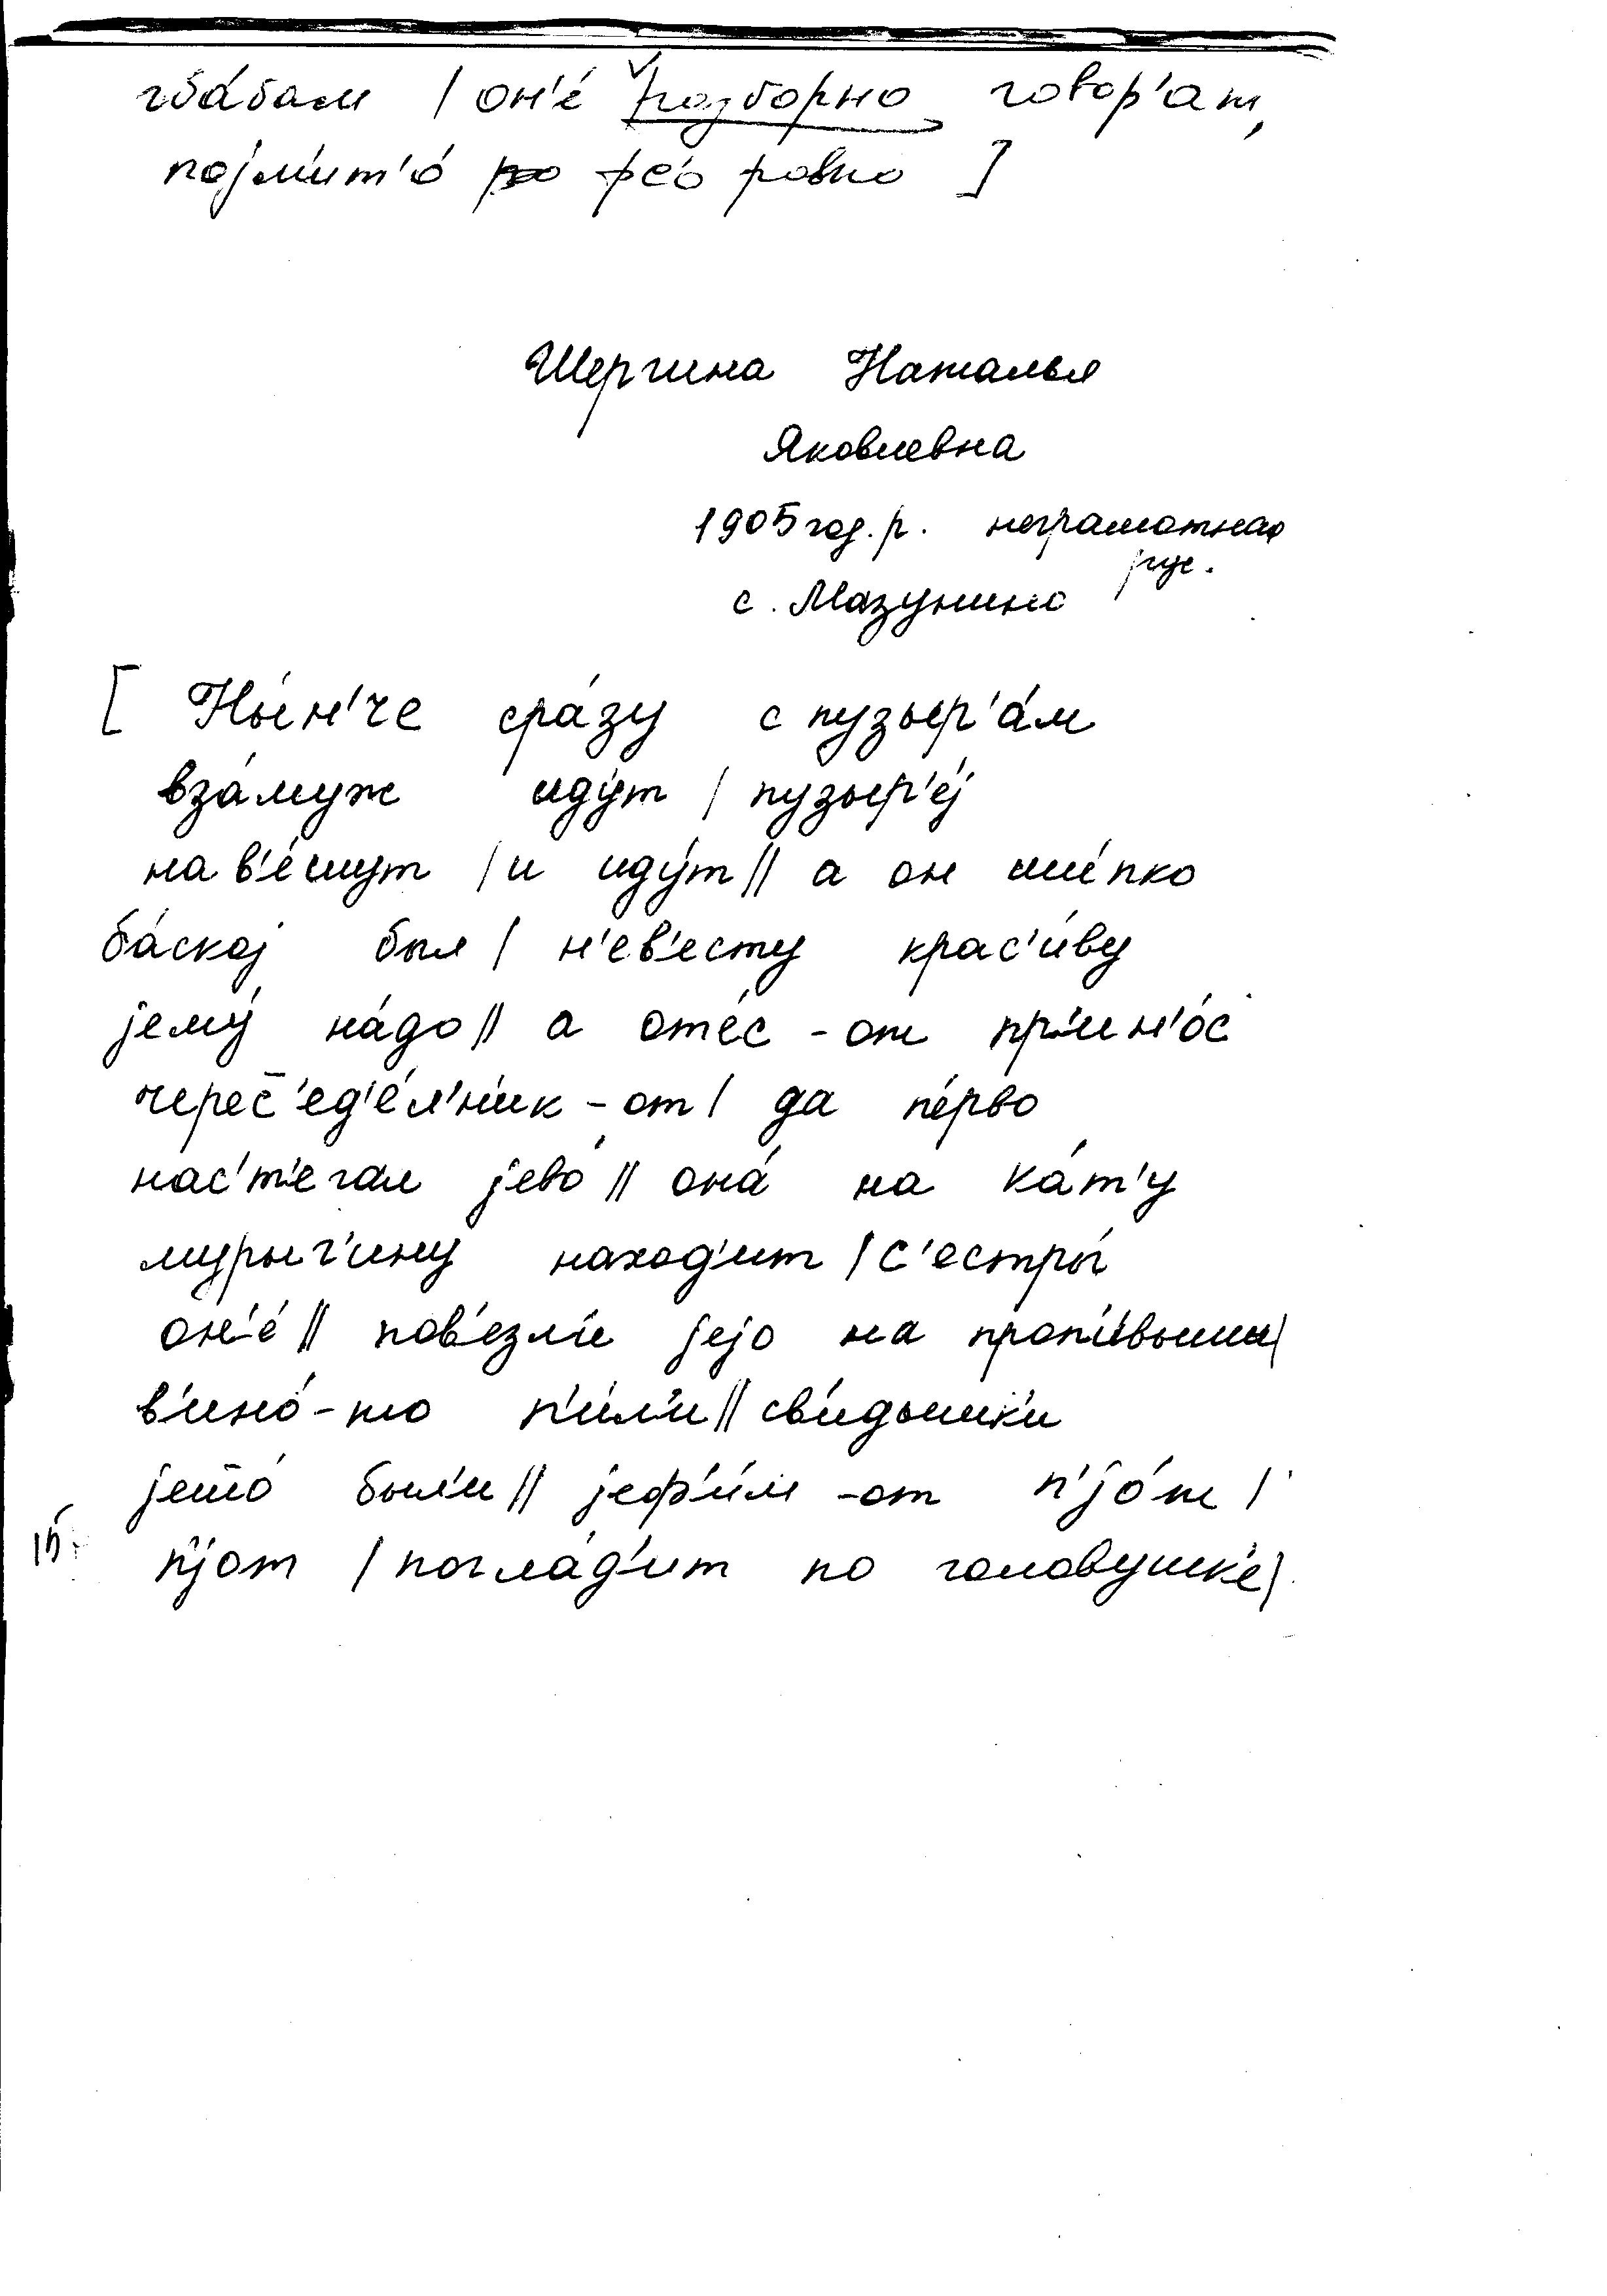 гба́бам | он'е́ розборно говор'ат,
пojм'ит'о́ фс'о ровно ]
Шергина Наталья
Яковлевна
1905 год. р. неграмотная
рус.
с. Мазунино
[ Ны́н'че сра́зу с пузыр'а́м
вза́муж иду́т | пузыр'е́j
нав'е́шут | и иду́т || а он ши́пко
ба́скоj был | н'ев'есту крас'и́ву
jему́ на́до || а оте́с -от пр'ин'о́с
черес̄'ед'е́л'н'ик -от | да пе́рво
нас'т'ега́л jево́ || она́ на ка́т'у
мурыг'ину находит | с'естры́
он'е́ || пов'езл'и jejо на проп'и́вышы |
в'ино́-то п'и́л'и || св'и́дышк'и
jеш̄о́ был'и || jеф'и́м -от п'jо́т |
15. п'jот | погла́д'ит по головушк'е |